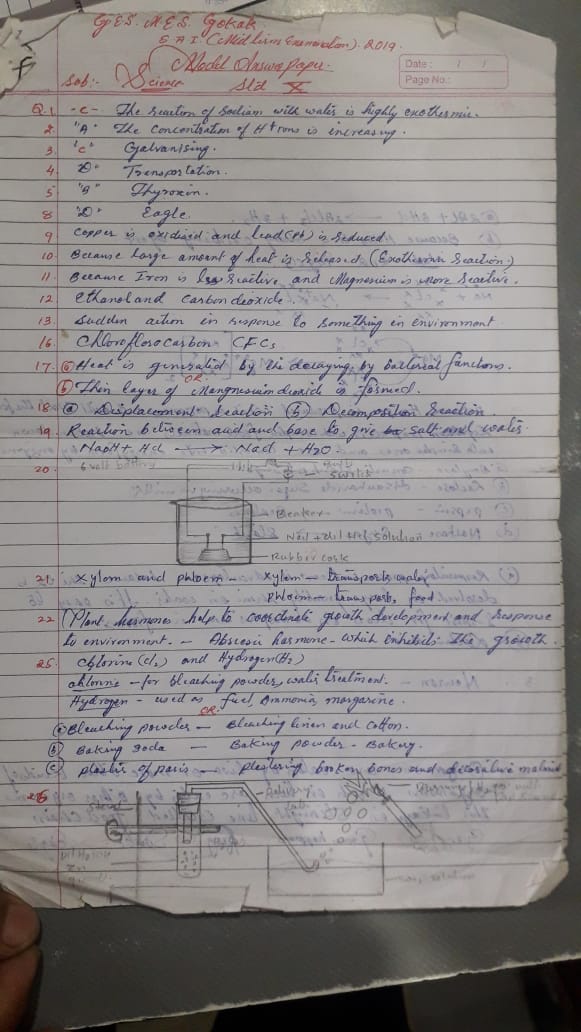 G.E.S. M.E.S. Gokak
S A I (Mid term Examination). 2019.
Model Answer paper.
Date : / /
Page No.:
Sub:- Science Std X
Q.1 -c- The reaction of Sodium with water is highly exothermic.
2. "A" The Concentration of H+ions is increasing.
3. "C" Galvanising.
4. "D" Transportation.
5 "B" Thyroxin.
8 "D" Eagle.
9 Copper is oxidised and lead(Pb) is reduced.
10. Because large amount of heat is released (Exothermic reaction)
11. Because Iron is less reactive and Magnesium is more reactive.
12 Ethanol and Carbon deoxide.
13. Suddin action in response to something in environment
16. Chloroflorocarbon CFCs
17. (a) Heat is generated by the decaying by bacterial functions.
OR.
(b) Thin layer of Mangnesium dioxide is formed.
18 (a) Displacement reaction (b) Decomposition reaction.
19. Reaction between acid and base to give salt and water.
NaoH + Hcl → Nacl + H2O.
20. 6 volt battery
Switch
Beaker
Rubber cork
21. Xylem and phloem - Xylem - transports water
phloem - transports food
22 Plant hormones help to coordinate growth development and response
to environment. - Abscesic harmone - which inhibits the growth.
25. Chlorine (cl2) and Hydrogen (H2)
chlorine - for bleaching powder, water treatment.
Hydrogen - used as fuel, Ammonia, margarine.
OR.
(a) Bleaching powder - Bleaching linen and cotton.
(b) Baking Soda - Baking powder - Bakery.
(c) plaster of paris - plastering broken bones and decorative material
26
Stand
Delivery
tube